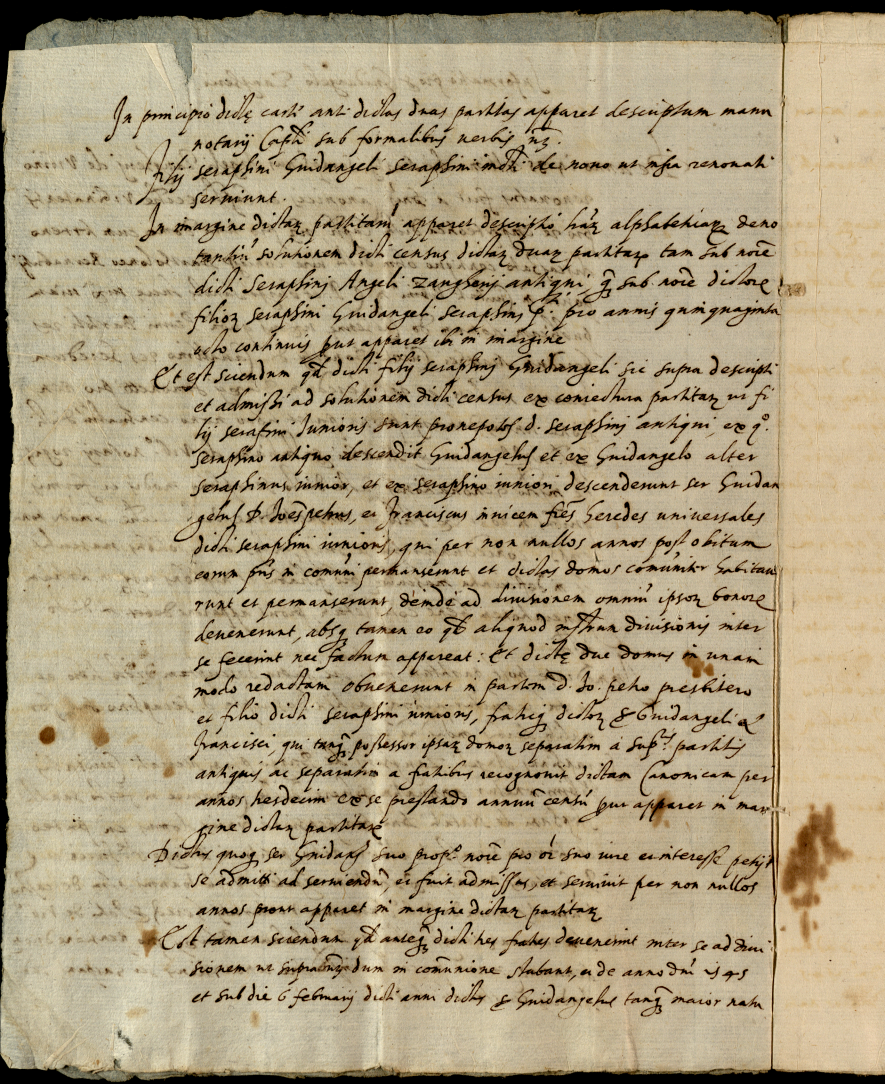 In principio dictę cartę anti dictas duas partitas apparet descriptum manu
notarij Capli sub formalibus uerbis uz.
Filij seraphini Guidangeli seraphini indti de nono ut infra renonati
seruiunt.
In margine dictaꝝ partitarũ apparet descriptio
solutionem dicti census dictaꝝ duaꝝ partitaꝝ tam sub noẽ
dicti Seraphinj Angeli Zangherij antiqui, q̃ sub noẽ dictoꝝ
filioꝝ seraphini Guidangeli seraphinj pti. pro annis quinquaginta
octo continuis put apparet ibi in margine
Et est sciendum qđ dicti filij seraphinj Guidangeli sic supra descripti
et admissi ad solutionem dicti census ex coniectura partitaꝝ ut fi
lij serafini Iunioris sunt pronepotes d. seraphinj antiqui, ex qº.
seraphino antiquo descendit Guidangelus et ex Guidangelo alter
seraphinus iunior, et ex seraphino iuniori descenderunt ser Guidan
gelus D. Ioespetrus, et Franciscus inuicem frẽs heredes uniuersales
dicti seraphini iunioris, qui per non nullos annos post obitum
eorum pris in comuni permanserunt et dictas domos comuniter habitaue
runt et permanserunt, deinde ad diuisionem omniũ ipsoꝝ bonoꝝ
deuenerunt, absq tamen eo qđ aliquod instrum diuisionis inter
se fecerint nec factum appareat: Et dictę due domus in unam
modo redactam obuenerunt in partem D. Io. petro presbitero
et filio dicti seraphini iunioris, fratriq dictoꝝ Guidangeli et
Francisci, qui tanq̃ possessor ipsaꝝ domoꝝ separatim a supᵗⁱˢ partitis
antiquis ac separatim a fratibus recognouit dictam Canonicam per
annos hesdecim ex se prestando annuũ censũ put apparet in mar
gine dictaꝝ partitaꝝ
Dictus quoq ser Guidangs suo propº noẽ pro oi suo iure et interesse petijt
se admitti ad seruiendũ, et fuit admissus, et seruiuit per non nullos
annos prout apparet in margine dictaꝝ partitaꝝ
Est tamen sciendum qđ anteq̃ dicti hes frates deuenerint inter se ad diui
sionem ut supra dum in comunione stabant, et de anno dni 1545
et sub die 6 februarij dicti anni dictus Guidangelus tanq̃ maior natu